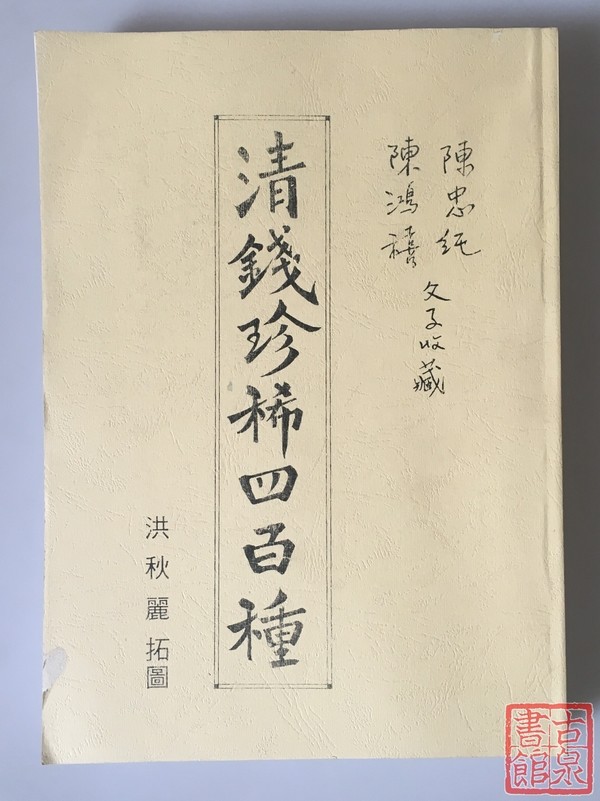 陳忠純
陳鴻禧
父子收藏
清錢珍稀四百種
洪秋麗拓圖
古泉書館